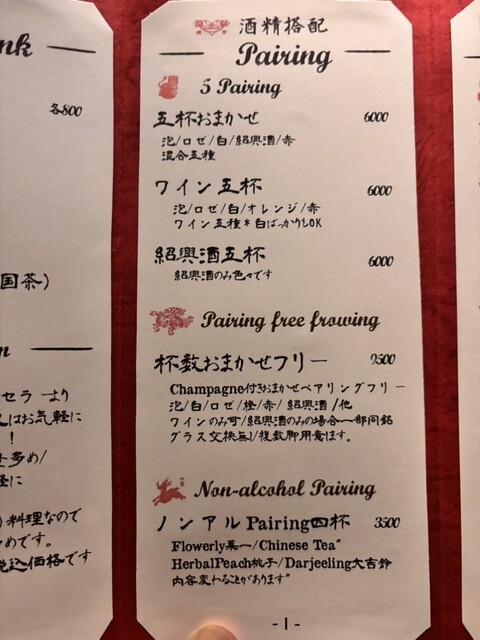 nk
各800
国茶)
n
セラーより
はお気軽に
!
多め/
軽に
)料理なので
めです。
税込価格です
酒精搭配
Pairing
5 Pairing
五杯おまかせ 6000
泡/ロゼ/白/紹興酒/赤
混合五種
ワイン五杯 6000
泡/ロゼ/白/オレンジ/赤
ワイン五種*白ばっかりもOK
紹興酒五杯 6000
紹興酒のみ色々です
Pairing free frowing
杯数おまかせフリー 9500
Champagne付きおまかせペアリングフリー
泡/白/ロゼ/橙/赤/紹興酒/他
ワインのみ可/紹興酒のみの場合一部同銘
グラス交換無し/複数御用意ます。
Non-alcohol Pairing
ノンアルPairing四杯 3500
Flowerly菓一/Chinese Tea"
HerbalPeach桃子/Darjeeling大吉鈴
内容変わることがあります"
-1-